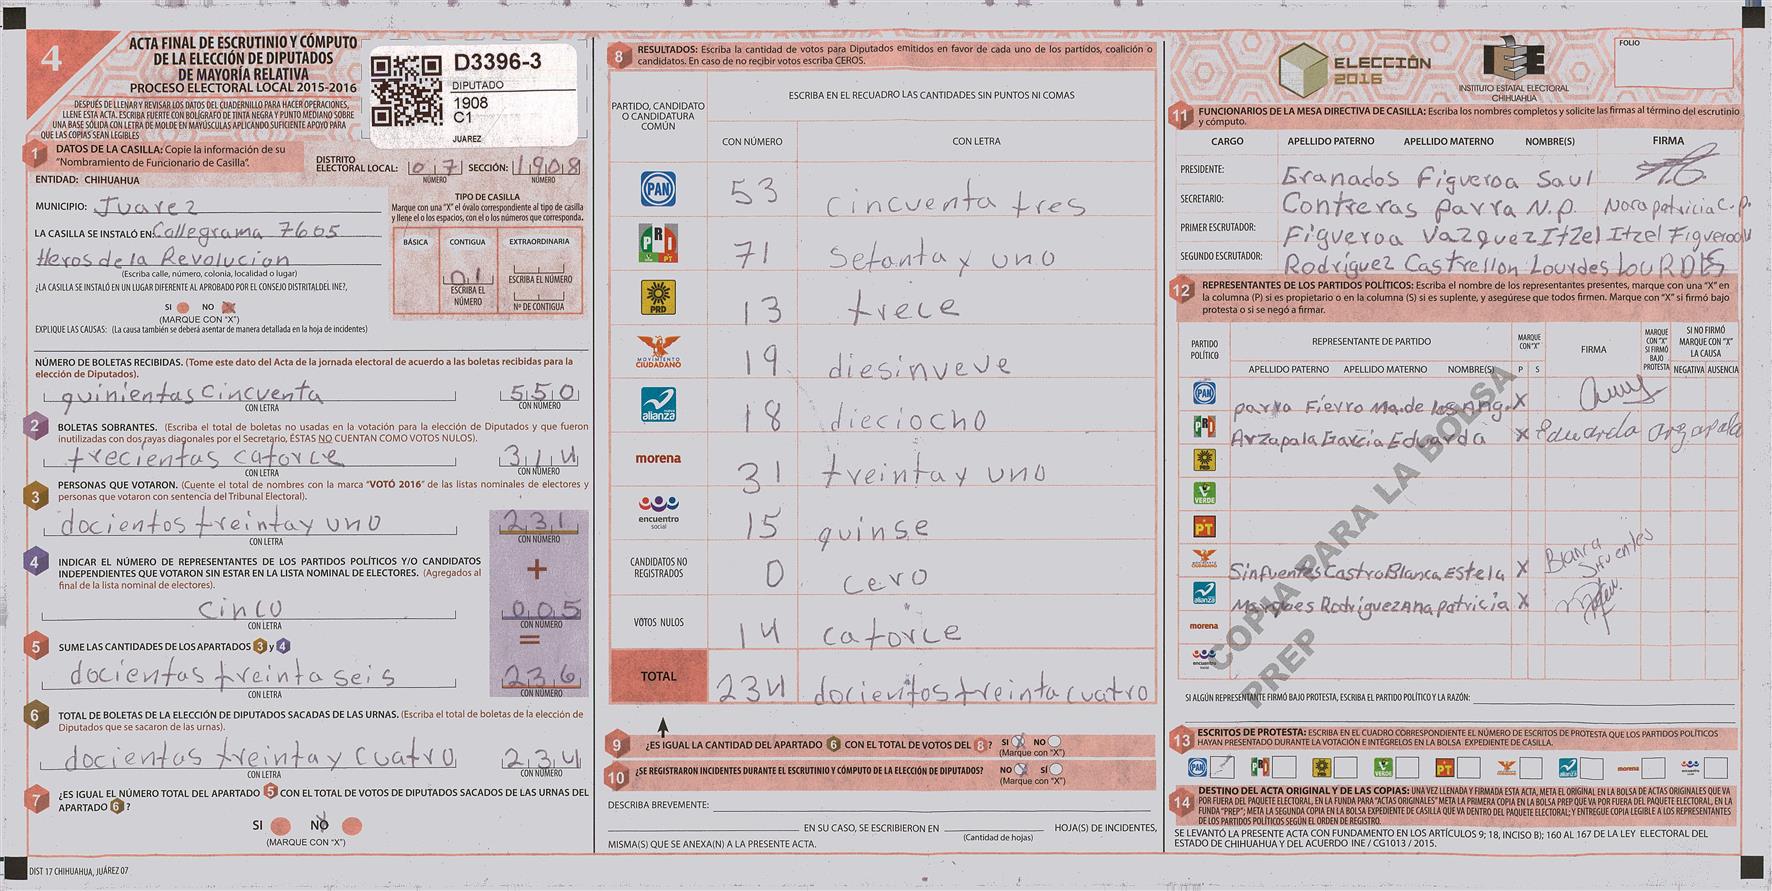 4
ACTA FINAL DE ESCRUTINIO Y CÓMPUTO
DE LA ELECCIÓN DE DIPUTADOS
DE MAYORÍA RELATIVA
PROCESO ELECTORAL LOCAL 2015-2016
DESPUÉS DE LLENAR Y REVISAR LOS DATOS DEL CUADERNILLO PARA HACER OPERACIONES,
LLENE ESTA ACTA. ESCRIBA FUERTE CON BOLÍGRAFO DE TINTA NEGRA Y PUNTO MEDIANO SOBRE
UNA BASE SÓLIDA CON LETRA DE MOLDE EN MAYÚSCULAS APLICANDO SUFICIENTE APOYO PARA
QUE LAS COPIAS SEAN LEGIBLES
D3396-3
DIPUTADO
1908
C1
JUAREZ
1 DATOS DE LA CASILLA: Copie la información de su
"Nombramiento de Funcionario de Casilla".
DISTRITO
ELECTORAL LOCAL: 07 SECCIÓN: 1908
NÚMERO NÚMERO
ENTIDAD: CHIHUAHUA
MUNICIPIO: Juarez
LA CASILLA SE INSTALÓ EN: Callegrama 7605
Heros de la Revolucion
(Escriba calle, número, colonia, localidad o lugar)
¿LA CASILLA SE INSTALÓ EN UN LUGAR DIFERENTE AL APROBADO POR EL CONSEJO DISTRITAL DEL INE?,
SI NO
(MARQUE CON "X")
EXPLIQUE LAS CAUSAS: (La causa también se deberá asentar de manera detallada en la hoja de incidentes)
TIPO DE CASILLA
Marque con una "X" el óvalo correspondiente al tipo de casilla
y llene el o los espacios, con el o los números que corresponda.
BÁSICA CONTIGUA EXTRAORDINARIA
01
ESCRIBA EL NÚMERO
ESCRIBA EL NÚMERO
Nº DE CONTIGUA
NÚMERO DE BOLETAS RECIBIDAS. (Tome este dato del Acta de la jornada electoral de acuerdo a las boletas recibidas para la
elección de Diputados).
quinientas cincuenta 550
CON LETRA CON NÚMERO
2 BOLETAS SOBRANTES. (Escriba el total de boletas no usadas en la votación para la elección de Diputados y que fueron
inutilizadas con dos rayas diagonales por el Secretario, ÉSTAS NO CUENTAN COMO VOTOS NULOS).
trecientas catorce 314
CON LETRA CON NÚMERO
3 PERSONAS QUE VOTARON. (Cuente el total de nombres con la marca "VOTÓ 2016" de las listas nominales de electores y
personas que votaron con sentencia del Tribunal Electoral).
docientos treinta y uno 231
CON LETRA CON NÚMERO
4 INDICAR EL NÚMERO DE REPRESENTANTES DE LOS PARTIDOS POLÍTICOS Y/O CANDIDATOS
INDEPENDIENTES QUE VOTARON SIN ESTAR EN LA LISTA NOMINAL DE ELECTORES. (Agregados al
final de la lista nominal de electores).
+
cinco 005
CON LETRA CON NÚMERO
=
5 SUME LAS CANTIDADES DE LOS APARTADOS 3 y 4
docientas treinta seis 236
CON LETRA CON NÚMERO
6 TOTAL DE BOLETAS DE LA ELECCIÓN DE DIPUTADOS SACADAS DE LAS URNAS. (Escriba el total de boletas de la elección de
Diputados que se sacaron de las urnas).
docientas treinta y cuatro 234
CON LETRA CON NÚMERO
7 ¿ES IGUAL EL NÚMERO TOTAL DEL APARTADO 5 CON EL TOTAL DE VOTOS DE DIPUTADOS SACADOS DE LAS URNAS DEL
APARTADO 6?
SI NO
(MARQUE CON "X")
DIST 17 CHIHUAHUA, JUÁREZ 07
8 RESULTADOS: Escriba la cantidad de votos para Diputados emitidos en favor de cada uno de los partidos, coalición o
candidatos. En caso de no recibir votos escriba CEROS.
PARTIDO, CANDIDATO
O CANDIDATURA
COMÚN
ESCRIBA EN EL RECUADRO LAS CANTIDADES SIN PUNTOS NI COMAS
CON NÚMERO CON LETRA
PAN 53 cincuenta tres
PRI VERDE PT 71 setenta y uno
PRD 13 trece
MOVIMIENTO CIUDADANO 19 diesinveve
nueva alianza 18 dieciocho
morena 31 treinta y uno
encuentro social 15 quinse
CANDIDATOS NO
REGISTRADOS 0 cero
VOTOS NULOS 14 catorce
TOTAL 234 docientos treinta cuatro
9 ¿ES IGUAL LA CANTIDAD DEL APARTADO 6 CON EL TOTAL DE VOTOS DEL 8? SI X NO
(Marque con "X")
10 ¿SE REGISTRARON INCIDENTES DURANTE EL ESCRUTINIO Y CÓMPUTO DE LA ELECCIÓN DE DIPUTADOS? NO X SÍ
(Marque con "X")
DESCRIBA BREVEMENTE:
EN SU CASO, SE ESCRIBIERON EN HOJA(S) DE INCIDENTES,
(Cantidad de hojas)
MISMA(S) QUE SE ANEXA(N) A LA PRESENTE ACTA.
ELECCIÓN
2016
IEE
INSTITUTO ESTATAL ELECTORAL
CHIHUAHUA
FOLIO
11 FUNCIONARIOS DE LA MESA DIRECTIVA DE CASILLA: Escriba los nombres completos y solicite las firmas al término del escrutinio
y cómputo.
CARGO APELLIDO PATERNO APELLIDO MATERNO NOMBRE(S) FIRMA
PRESIDENTE: Granados Figueroa Saul
SECRETARIO: Contreras parra N.p. Nora patricia C.p.
PRIMER ESCRUTADOR: Figueroa Vazquez Itzel Itzel Figueroa V
SEGUNDO ESCRUTADOR: Rodríguez Castrellon Lourdes LOURDES
12 REPRESENTANTES DE LOS PARTIDOS POLÍTICOS: Escriba el nombre de los representantes presentes, marque con una "X" en
la columna (P) si es propietario o en la columna (S) si es suplente, y asegúrese que todos firmen. Marque con "X" si firmó bajo
protesta o si se negó a firmar.
PARTIDO
POLÍTICO
REPRESENTANTE DE PARTIDO
MARQUE CON "X"
FIRMA
MARQUE CON "X" SI FIRMÓ BAJO PROTESTA
SI NO FIRMÓ MARQUE CON "X" LA CAUSA
APELLIDO PATERNO APELLIDO MATERNO NOMBRE(S) P S NEGATIVA AUSENCIA
PAN parra Fierro Ma. de los Ang. X
PRI Arzapala García Eduarda X Eduarda arzapala
PRD
VERDE
PT
Sinfuentes Castro Blanca Estela X Blanca Sifuentes
alianza Marquez Rodríguez Ana patricia X
morena
encuentro social
COPIA PARA LA BOLSA
PREP
SI ALGÚN REPRESENTANTE FIRMÓ BAJO PROTESTA, ESCRIBA EL PARTIDO POLÍTICO Y LA RAZÓN:
13 ESCRITOS DE PROTESTA: ESCRIBA EN EL CUADRO CORRESPONDIENTE EL NÚMERO DE ESCRITOS DE PROTESTA QUE LOS PARTIDOS POLÍTICOS
HAYAN PRESENTADO DURANTE LA VOTACIÓN E INTÉGRELOS EN LA BOLSA EXPEDIENTE DE CASILLA.
PAN PRI PRD VERDE PT alianza morena
14 DESTINO DEL ACTA ORIGINAL Y DE LAS COPIAS: UNA VEZ LLENADA Y FIRMADA ESTA ACTA, META EL ORIGINAL EN LA BOLSA DE ACTAS ORIGINALES QUE VA
POR FUERA DEL PAQUETE ELECTORAL, EN LA FUNDA PARA "ACTAS ORIGINALES" META LA PRIMERA COPIA EN LA BOLSA PREP QUE VA POR FUERA DEL PAQUETE ELECTORAL, EN LA
FUNDA "PREP"; META LA SEGUNDA COPIA EN LA BOLSA EXPEDIENTE DE CASILLA QUE VA DENTRO DEL PAQUETE ELECTORAL; Y ENTREGUE COPIA LEGIBLE A LOS REPRESENTANTES
DE LOS PARTIDOS POLÍTICOS SEGÚN EL ORDEN DE REGISTRO.
SE LEVANTÓ LA PRESENTE ACTA CON FUNDAMENTO EN LOS ARTÍCULOS 9; 18, INCISO B); 160 AL 167 DE LA LEY ELECTORAL DEL
ESTADO DE CHIHUAHUA Y DEL ACUERDO INE / CG1013 / 2015.